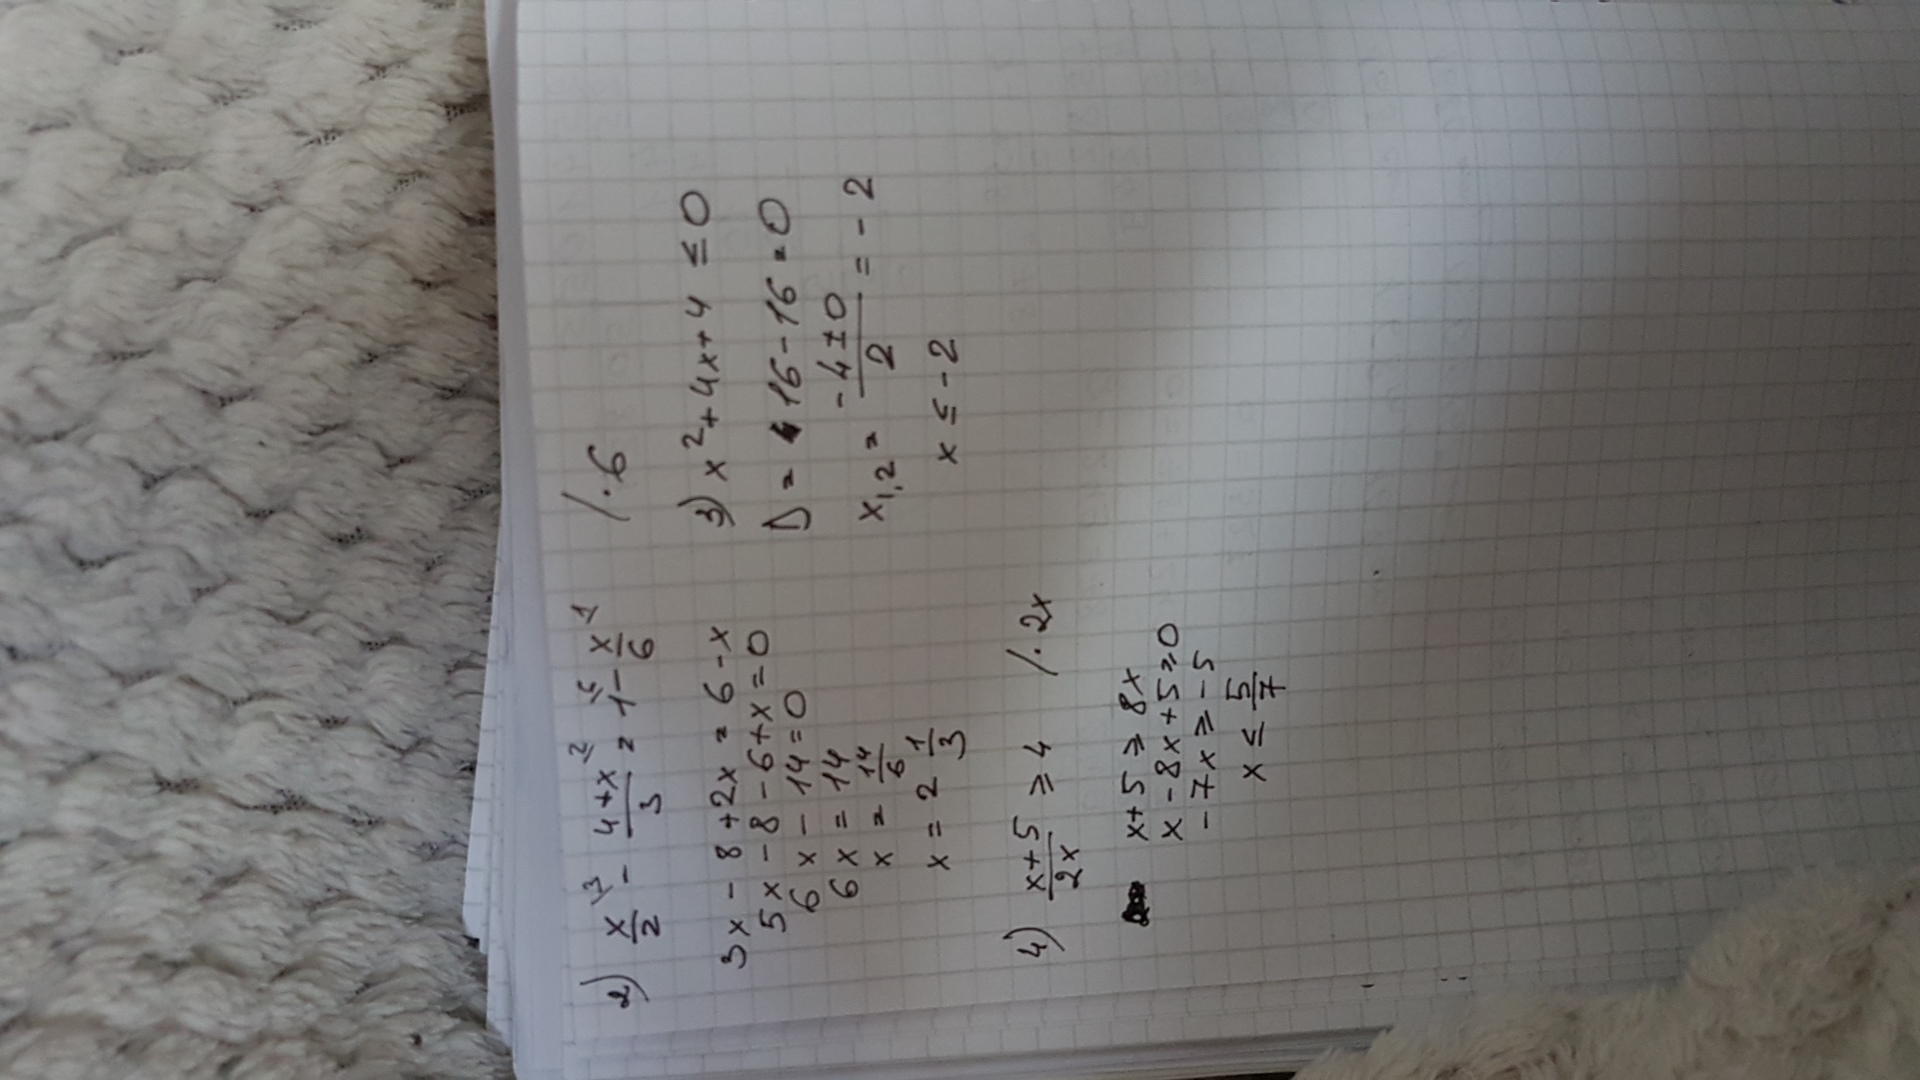 2) x/2 ³ - 4+x/3 ² = 1 ⁶ - x/6 ¹ /·6
3x - 8 + 2x = 6 - x
5x - 8 - 6 + x = 0
6x - 14 = 0
6x = 14
x = 14/6
x = 2 1/3
3) x² + 4x + 4 ≤ 0
D = 16 - 16 = 0
x1,2 = -4±0/2 = -2
x ≤ -2
4) x+5/2x ≥ 4 /·2x
x + 5 ≥ 8x
x - 8x + 5 ≥ 0
-7x ≥ -5
x ≤ 5/7